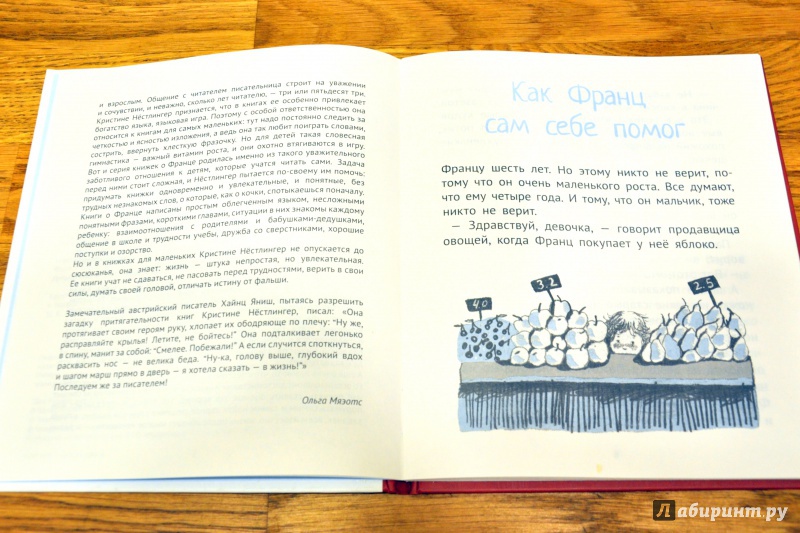 и взрослым. Общение с читателем писательница строит на уважении
и сочувствии, и неважно, сколько лет читателю, — три или пятьдесят три.
Кристине Нёстлингер признается, что в книгах ее особенно привлекает
богатство языка, языковая игра. Поэтому с особой ответственностью она
относится к книгам для самых маленьких: тут надо постоянно следить за
четкостью и ясностью изложения, а ведь она так любит поиграть словами,
сострить, ввернуть хлесткую фразочку. Но для детей такая словесная
гимнастика — важный витамин роста, и они охотно втягиваются в игру.
Вот и серия книжек о Франце родилась именно из такого уважительного
заботливого отношения к детям, которые учатся читать сами. Задача
перед ними стоит сложная, и Нёстлингер пытается по-своему им помочь:
придумать книжки одновременно и увлекательные, и понятные, без
трудных незнакомых слов, о которые, как о кочки, спотыкаешься поначалу.
Книги о Франце написаны простым облегченным языком, несложными
понятными фразами, короткими главами, ситуации в них знакомы каждому
ребенку: взаимоотношения с родителями и бабушками-дедушками,
общение в школе и трудности учебы, дружба со сверстниками, хорошие
поступки и озорство.
Но и в книжках для маленьких Кристине Нёстлингер не опускается до
сюсюканья, она знает: жизнь — штука непростая, но увлекательная.
Ее книги учат не сдаваться, не пасовать перед трудностями, верить в свои
силы, думать своей головой, отличать истину от фальши.
Замечательный австрийский писатель Хайнц Яниш, пытаясь разрешить
загадку притягательности книг Кристине Нёстлингер, писал: «Она
протягивает своим героям руку, хлопает их ободряюще по плечу: "Ну же,
расправляйте крылья! Летите, не бойтесь!" Она подталкивает легонько
в спину, манит за собой: "Смелее. Побежали!" А если случится споткнуться,
расквасить нос — не велика беда. "Ну-ка, голову выше, глубокий вдох
и шагом марш прямо в дверь — я хотела сказать — в жизнь!"»
Последуем же за писателем!
Ольга Мяэотс
Как Франц
сам себе помог
Францу шесть лет. Но этому никто не верит, по-
тому что он очень маленького роста. Все думают,
что ему четыре года. И тому, что он мальчик, тоже
никто не верит.
— Здравствуй, девочка, — говорит продавщица
овощей, когда Франц покупает у неё яблоко.
40
3.2
2.5
Лабиринт.ру